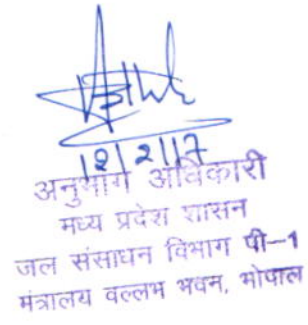 12/2/17
अनुभाग अधिकारी
मध्य प्रदेश शासन
जल संसाधन विभाग पी-1
मंत्रालय वल्लभ भवन, भोपाल